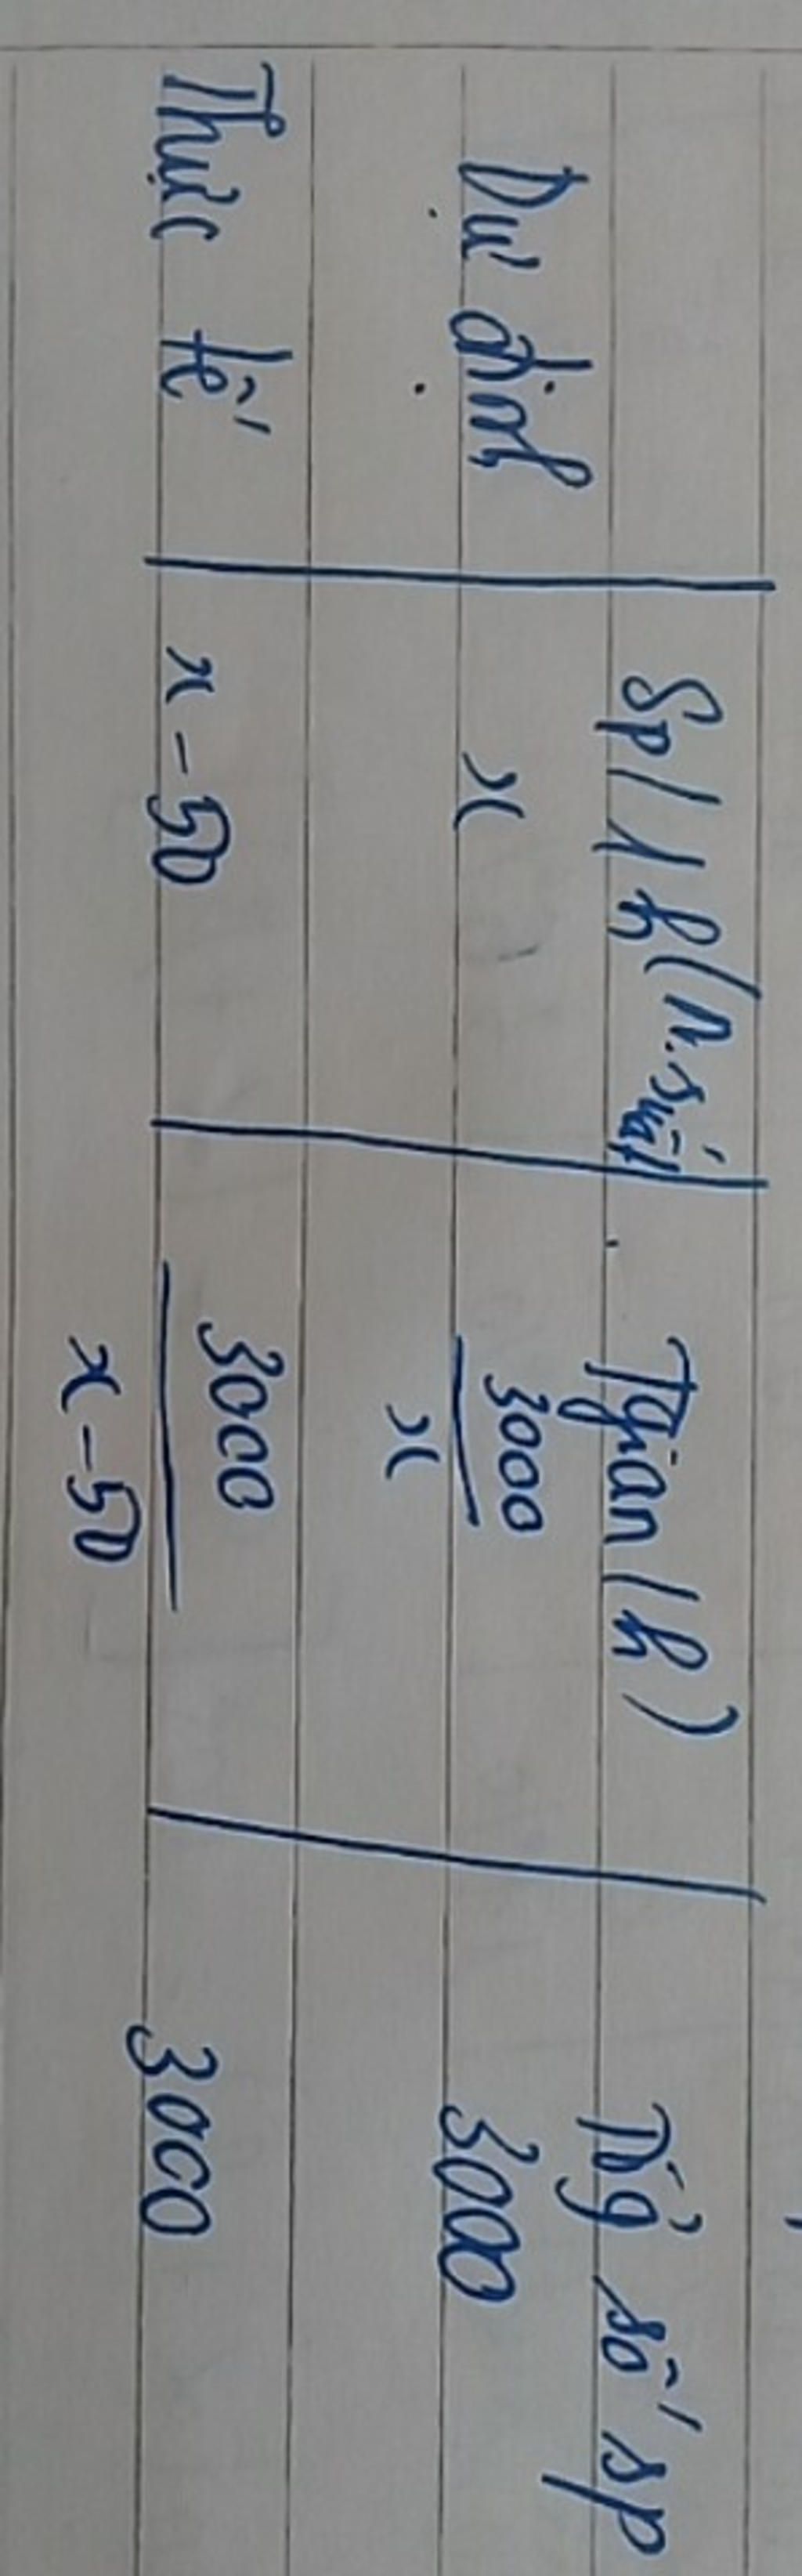 Sp / 1 h (n.suất . Tgian (h) Tổg số sp
Dự định x 3000/x 3000
Thực tế x - 50 3000/x - 50 3000